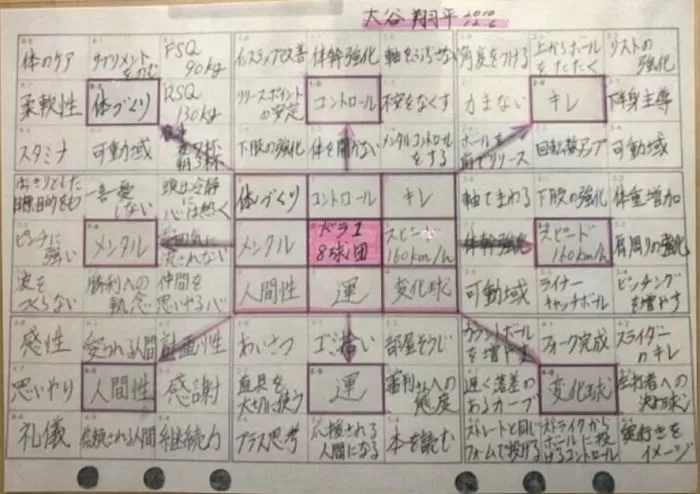 大谷 翔平 2010 12.6
体のケア サプリメントをのむ FSQ 90kg インステップ改善 体幹強化 軸をぶらさない 角度をつける 上からボールをたたく リストの強化
柔軟性 体づくり RSQ 130kg リリースポイントの安定 コントロール 不安をなくす 力まない キレ 下半身主導
スタミナ 可動域 下肢の強化 体を開かない メンタルコントロールをする ボールを前でリリース 回転数アップ 可動域
はっきりとした目標、目的をもつ 一喜一憂しない 頭は冷静に心は熱く 体づくり コントロール キレ 軸でまわる 下肢の強化 体重増加
ピンチに強い メンタル 雰囲気に流されない メンタル ドラ1 8球団 スピード160km/h 体幹強化 スピード160km/h 肩周りの強化
波をつくらない 勝利への執念 仲間を思いやる心 人間性 運 変化球 可動域 ライナーキャッチボール ピッチングを増やす
感性 愛される人間 計画性 あいさつ ゴミ拾い 部屋そうじ カウントボールを増やす フォーク完成 スライダーのキレ
思いやり 人間性 感謝 道具を大切に使う 運 審判さんへの態度 遅く落差のあるカーブ 変化球 左打者への決め球
礼儀 信頼される人間 継続力 プラス思考 応援される人間になる 本を読む ストレートと同じフォームで投げる ストライクからボールに投げるコントロール 奥行きをイメージ